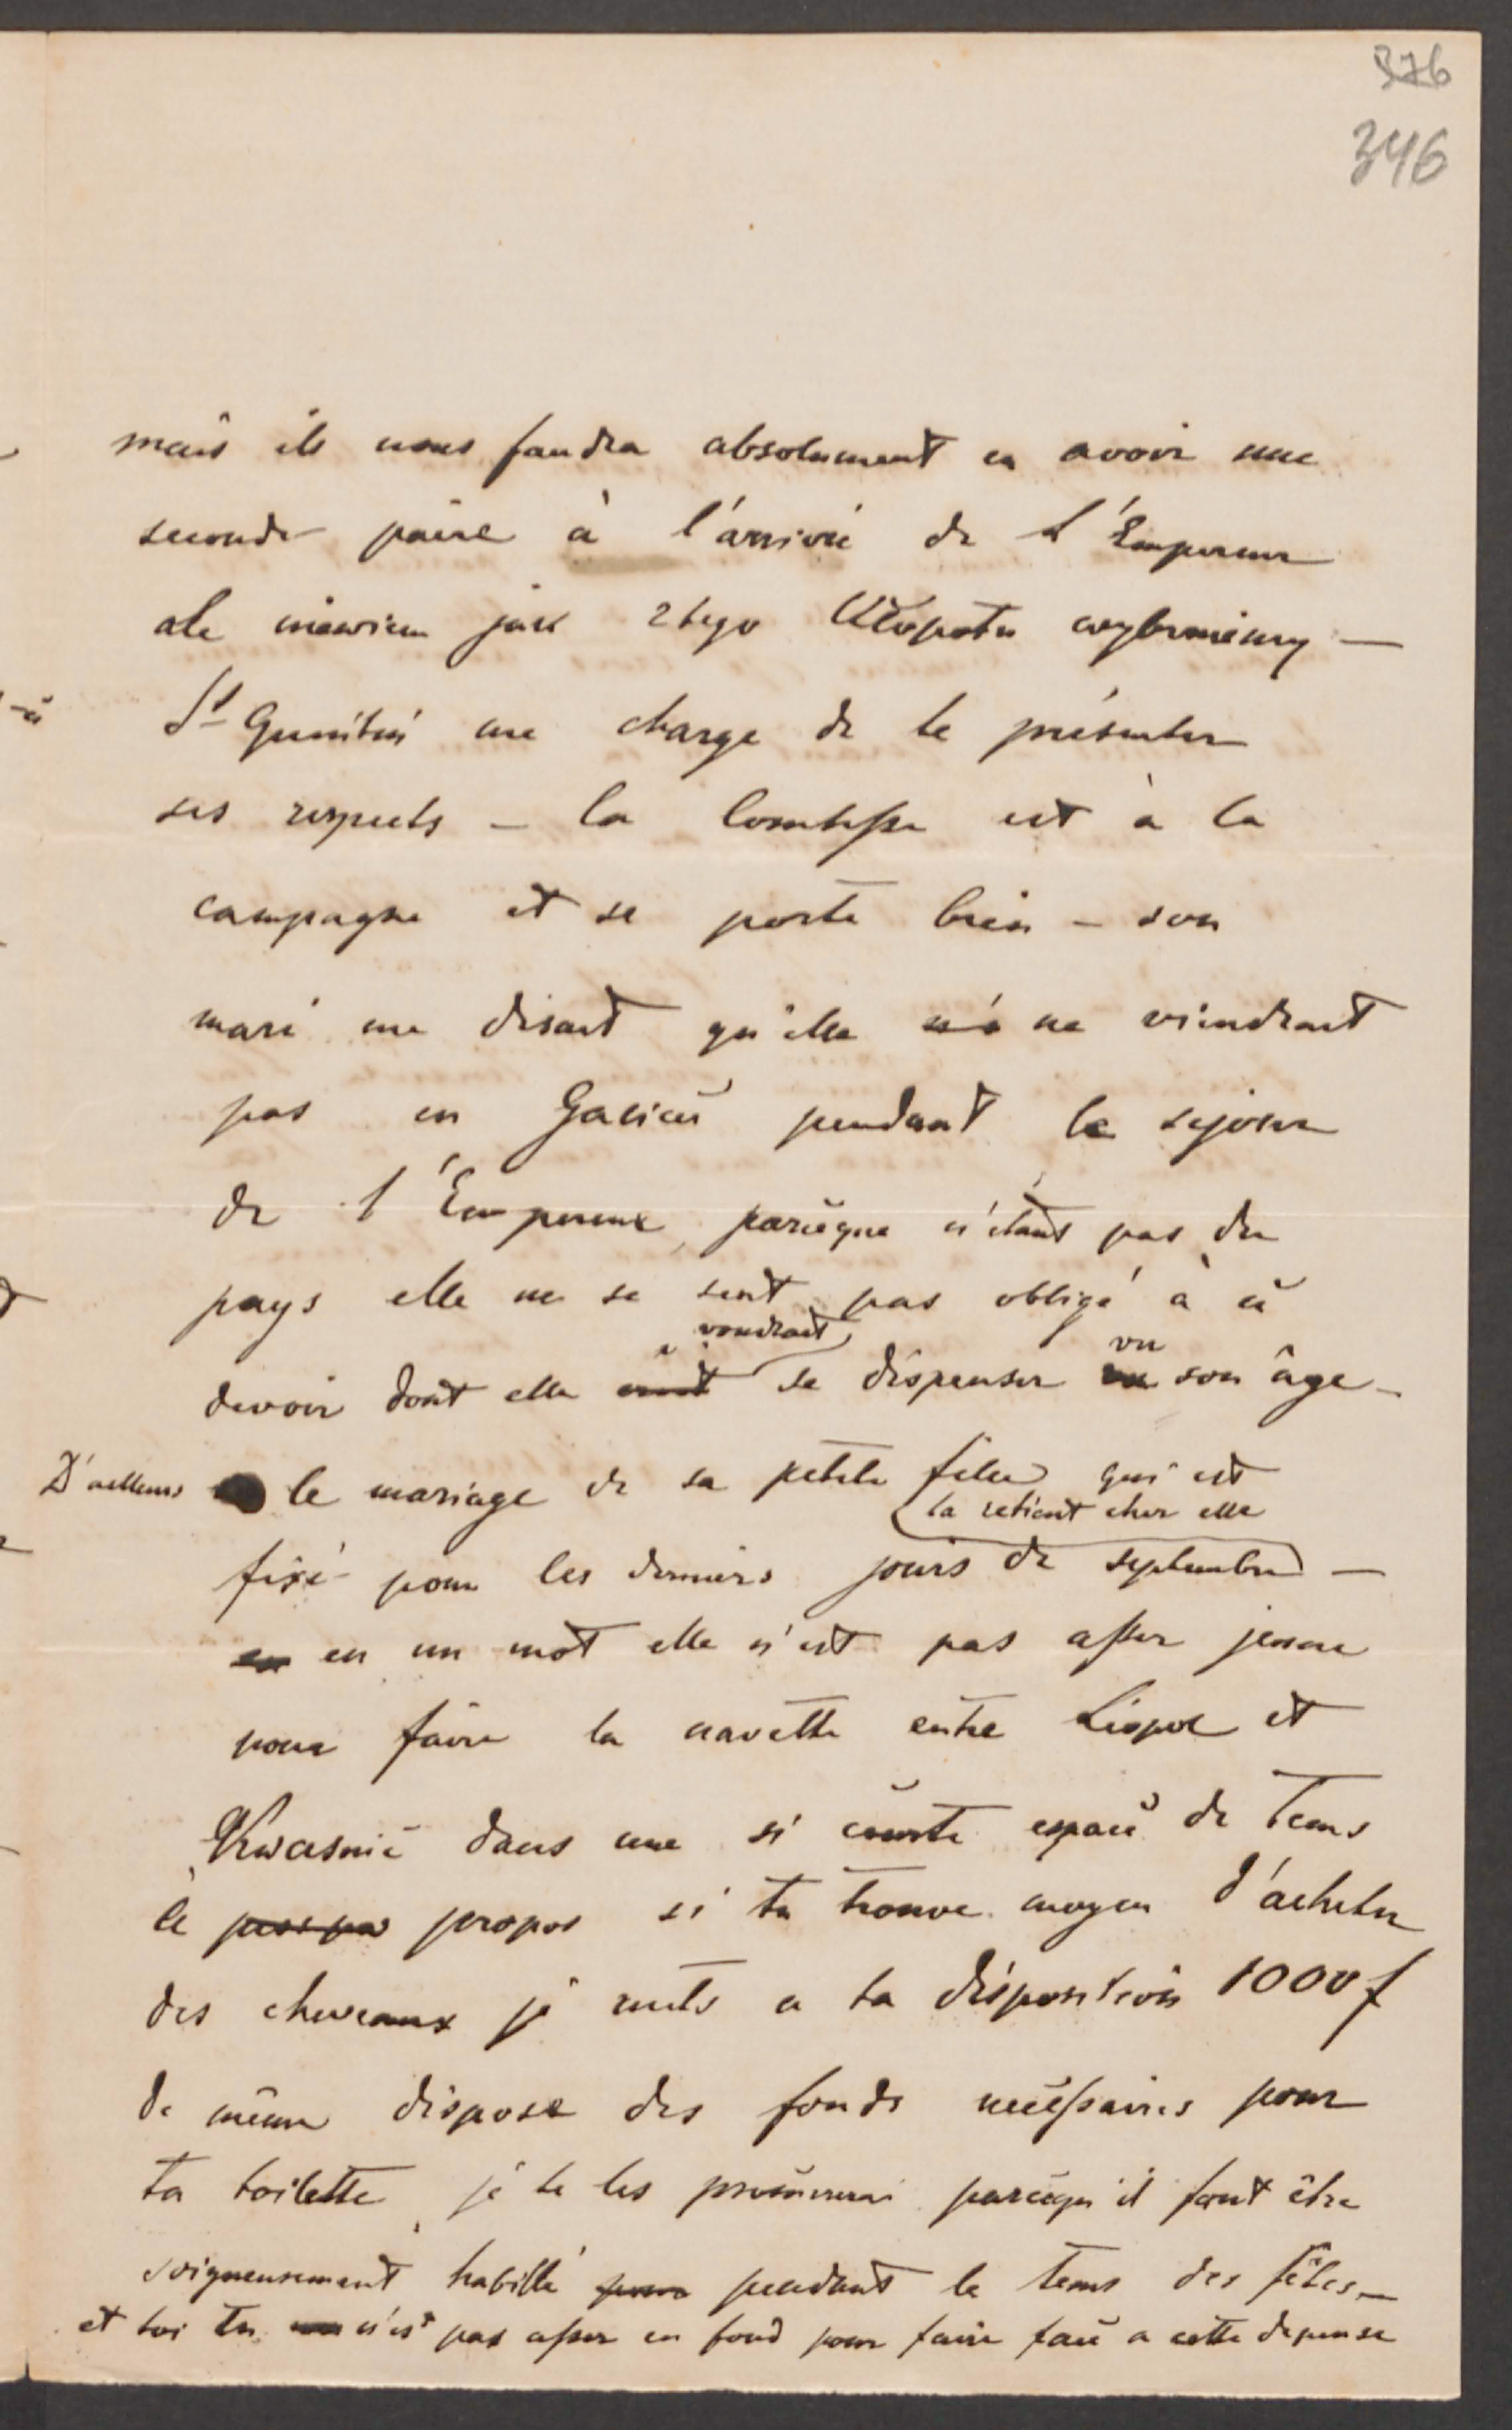 376
346
mais ils nous faudra absolument en avoir une
seconde paire à l'arrivé de L'Empereur
ale niewiem jak z tego kłopotu wybrniemy —
St Genitui me charge de te présenter
ses respects – la Comtesse est à la
campagne et se porte bien – son
mari me disait qu'elle ne viendrait
pas en Galicie pendant le sejour
de l'Empereur, parceque n'étant pas du
pays elle ne se sent pas obligé à ce
voudrait vu
devoir dont elle se dispenser son âge –
D'ailleurs le mariage de sa petite fille qui est
la retient chez elle
fixé pour les derniers jours de septembre —
en un mot elle n'est pas assez jeune
pour faire la navette entre Léopol et
Krasnie dans une si courte espace de tems
à propos si tu trouve moyen d'acheter
des cheveaux je mets a ta disposition 1000 f
de même dispose des fonds nécessaires pour
ta toilette je te les procurerai parcequ'il faut être
soigneusement habillé pendant le tems des fêtes –
et toi tu n'es pas assez en fond pour faire face a cette depense